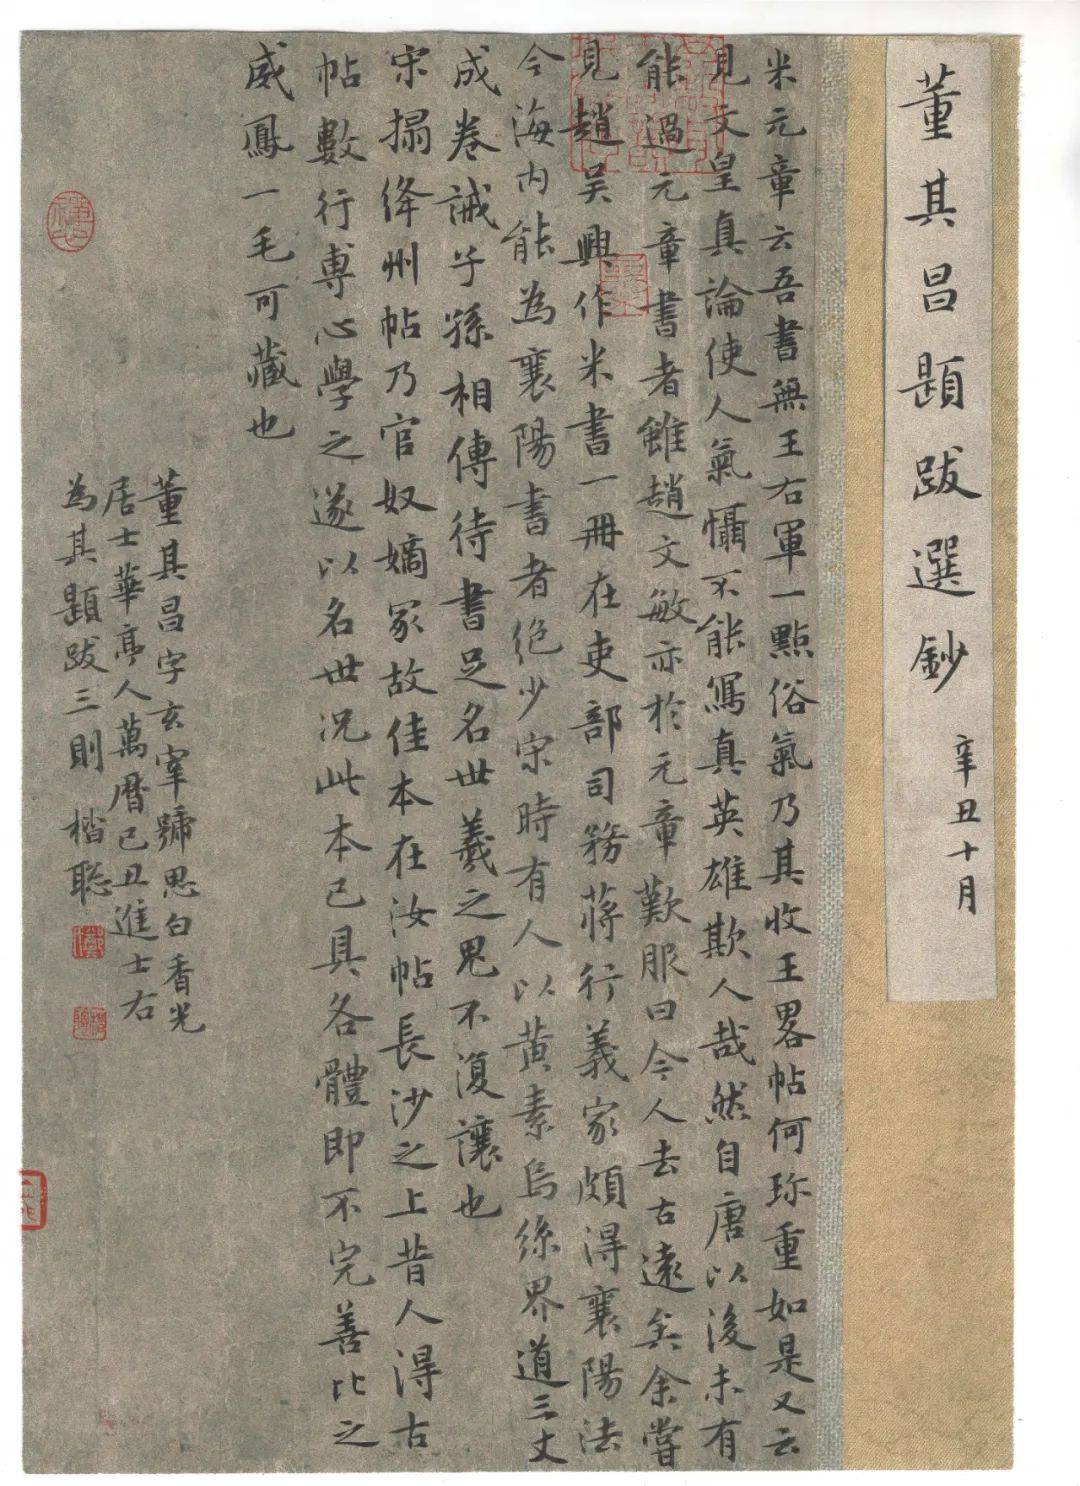 董其昌題跋選鈔
辛丑十月
米元章云吾書無王右軍一點俗氣乃其收王畧帖何珎重如是又云
見文皇真論使人氣懾不能寫真英雄欺人哉然自唐以後未有
能過元章書者雖趙文敏亦於元章歎服曰今人去古遠矣余嘗
見趙吳興作米書一冊在吏部司務蔣行義家頗得襄陽法
今海內能為襄陽書者絕少宋時有人以黃素烏絲界道三丈
成卷誡子孫相傳待書足名世羲之鬼不復讓也
宋搨絳州帖乃官奴嫡冢故佳本在汝帖長沙之上昔人得古
帖數行專心學之遂以名世況此本已具各體即不完善比之
威鳳一毛可藏也
董其昌字玄宰號思白香光
居士華亭人萬曆己丑進士右
為其題跋三則 楷聡